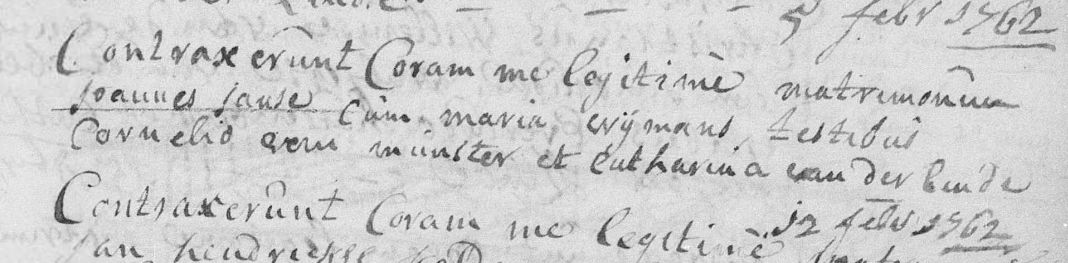 5 febr 1762
Contraxerunt Coram me legitimè matrimonium
Joannes Janse cum maria wijmans testibus
Cornelio van munster et Catharina van der linde
12 febr 1762
Contraxerunt Coram me legitimè
Jan hendrickse